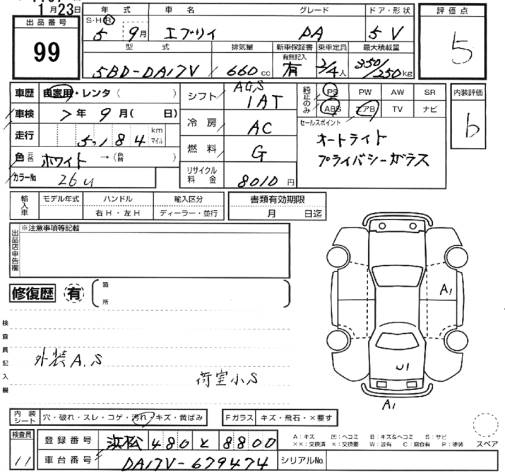 月23日
出品番号 年式 車名 グレード ドア・形状 評価点
99 S・H・R 5 9月 エブリイ PA 5V 5
型式 排気量 新車保証書 乗車定員 最大積載量
有無記入
5BD-DA17V 660cc 有 2/4人 350/250kg
車歴 自家用・レンタ シフト AGS 1AT 純正のみ PS PW AW SR 内装評価
車検 7年9月(日) ABS エアB TV ナビ b
走行 5,184 km マイル 冷房 AC セールスポイント
オートライト
色 ホワイト →( ) 燃料 G プライバシーガラス
カラーNo 26U リサイクル料金 8010円
輸入車 モデル年式 ハンドル 輸入区分 書類有効期限
右H・左H ディーラー・並行 月 日迄
出品店申告欄 ※注意事項等記載
修復歴 有 箇所
検査員記入欄
A1
外装A.S
荷室小S
U1
A1
内装シート 穴・破れ・スレ・コゲ・汚れ・キズ・黄ばみ Fガラス キズ・飛石・×要す
スペア
検査員 登録番号 浜松 480 と 8800
11 車台番号 DA17V-679474 シリアルNo